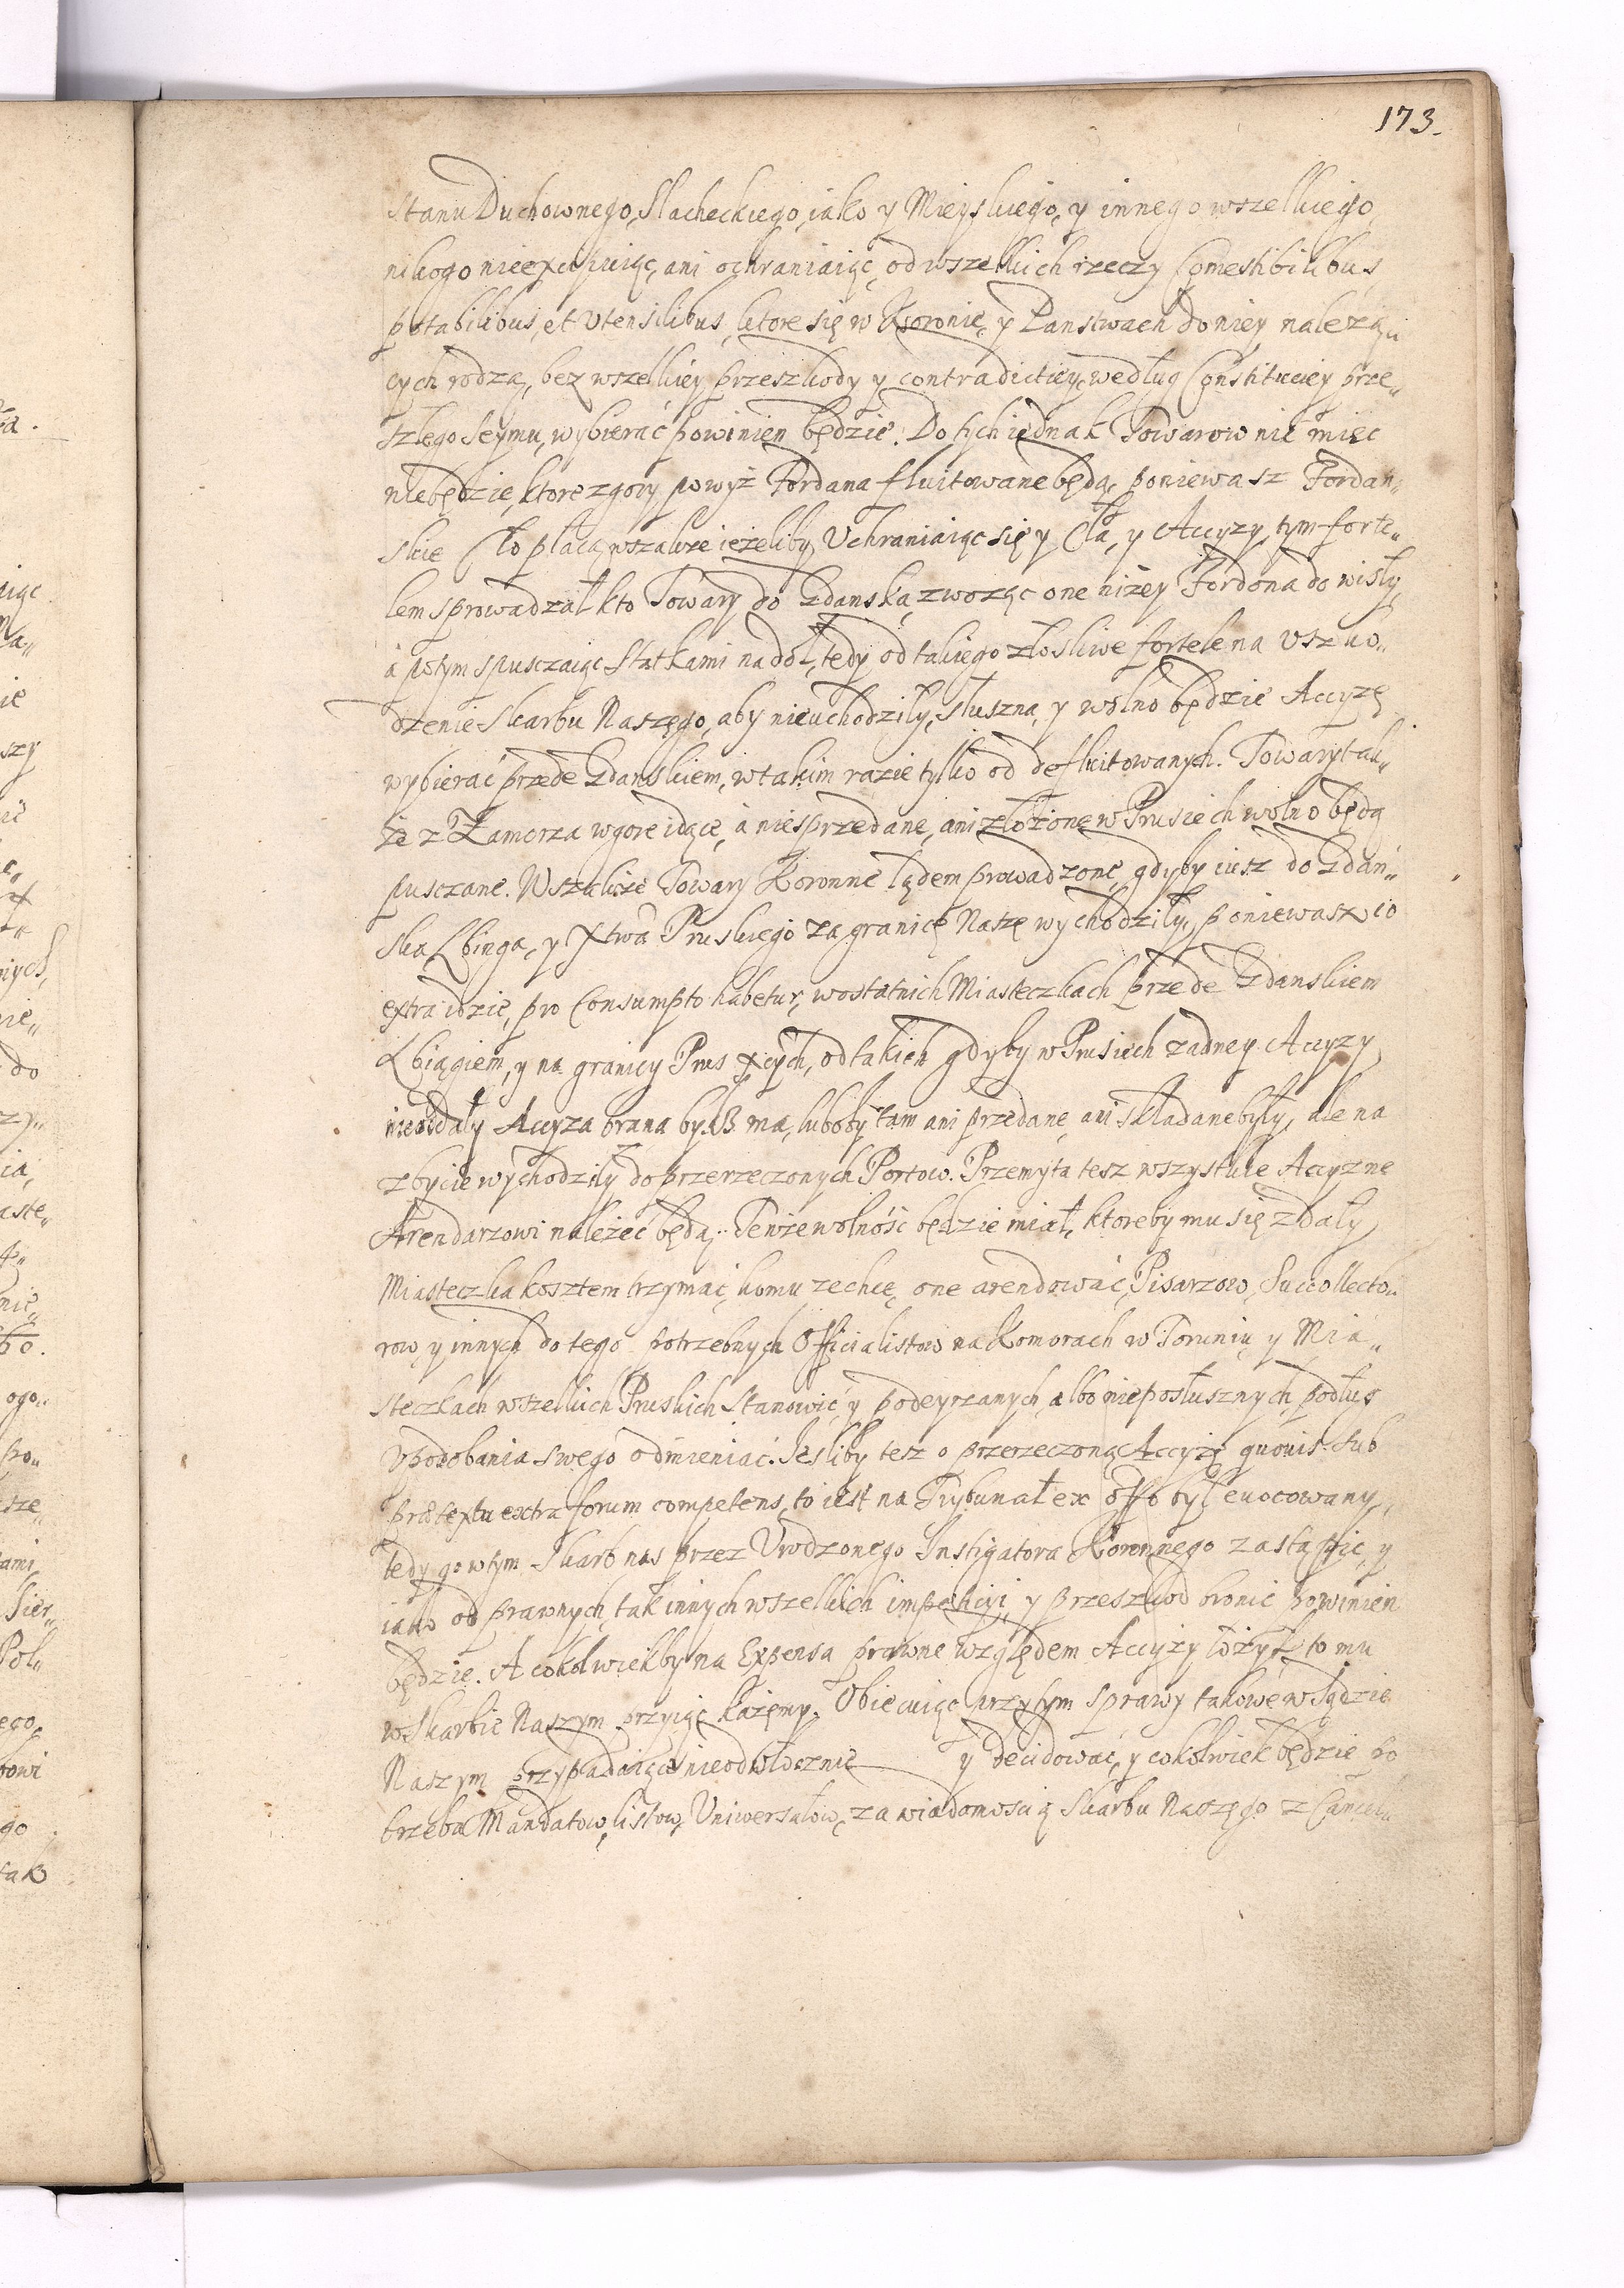 173.
Stanu Duchownego, Slacheckiego, iako y Mieyskiego, y innego wszelkiego,
nikogo nieexcipuiąc, ani ochraniaiąc, od wszelkich rzeczy Comestibilibus,
potabilibus, et Utensilibus, ktore się w Koronie, y Panstwach do niey należą„
cych rodzą, bez wszelkiey przeszkody y contradictiey, według Constituciey prze„
szłego Seymu, wybierać powinien będzie. Do tych iednak Towarow nic mieć
niebędzie, ktore z gory powyż Fordana fluitowane będą, poniewasz Fordan„
skie Cło płacą, wszakże ieżeliby Uchraniaiąc się y Cła, y Accyzy, tym forte„
lem sprowadzał kto Towary do Gdanska, zwożąc one niżey Fordona do Wisły,
á potym spusczaiąc Statkami na doł, tedy od takiego złosliwe fortele na uszko„
dzenie Skarbu Naszego, aby nieuchodziły, słuszna, y wolno będzie Accyzę
wybierać przede Gdanskiem, w takim razie tylko od defluitowanych. Towary tak„
że z Zamorza w gore idące, á niesprzedane, ani złożone w Prusiech wolno będą
pusczane. Wszakże Towary Koronne lędem prowadzone, gdyby iusz do Gdań„
ska Elbinga, y Xtwa Pruskiego za granicę Naszę wychodziły, poniewasz co
extra idzie, pro Consumpto habetur, w ostatnich Miasteczkach przede Gdanskiem
Elbiągiem, y na granicy Prus Xcych, od takich gdyby w Prusiech żadney Accyzy
nieoddały Accyza brana bydź ma, luboby tam ani przedane, ani składane były, ale na
zbycie wychodziły do przerzeczonych Portow. Przemyta tesz wszystkie Accyzne
Arendarzowi należeć będą. Tenże wolność będzie miał, ktoreby mu się zdały
Miasteczka kosztem trzymać, komu zechce, one arendować, Pisarzow, Succollecto„
row, y innych do tego potrzebnych Officialistow na Komorach w Toruniu y Mia„
steczkach wszelkich Pruskich Stanowić y podeyrzanych, albo nieposłusznych, podług
upodobania swego odmieniać. Jesliby tesz o przerzeczoną Accyzę quovis sub
praetextu extra forum competens, to iest na Trybunał ex offo był evocowany,
tedy go w tym Skarb nas przez Urodzonego Instigatora Koronnego zastąpić, y
iako od prawnych, tak innych wszelkich impeticyi, y przeszkod bronić powinien
będzie. A cokolwiekby na Expensa prawne względem Accyzy łożył, to mu
w Skarbie Naszym przyiąć każemy. Obiecuiąc przytym sprawy takowe w Sądzie
Naszym przypadaiące nieodwłocznie y decidować, y cokolwiek będzie po
trzeba Mandatow, listow, Uniwersałow, za wiadomoscią Skarbu Naszego z Cancell